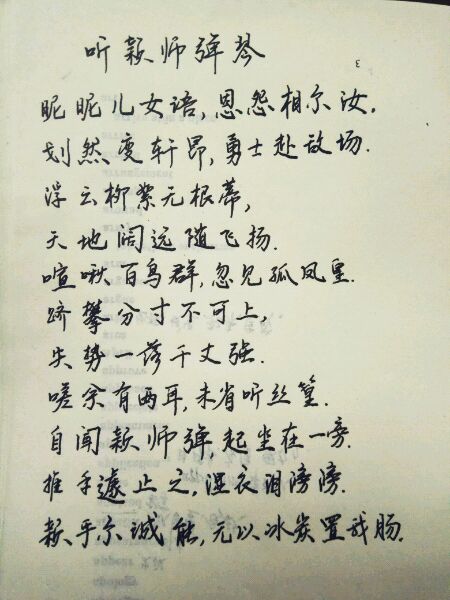 听颖师弹琴
3
昵昵儿女语,恩怨相尔汝,
划然变轩昂,勇士赴敌场.
浮云柳絮无根蒂,
天地阔远随飞扬.
喧啾百鸟群,忽见孤凤皇.
跻攀分寸不可上,
失势一落千丈强.
嗟余有两耳,未省听丝篁.
自闻颖师弹,起坐在一旁.
推手遽止之,湿衣泪滂滂.
颖乎尔诚能,无以冰炭置我肠.